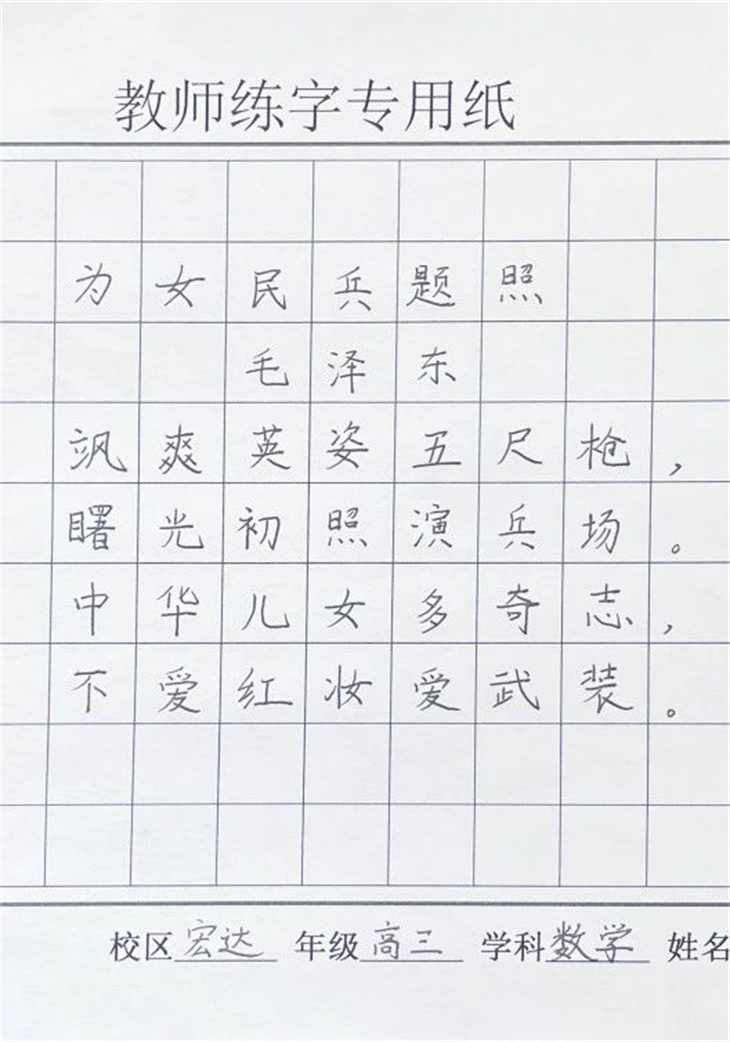 教师练字专用纸
为女民兵题照
毛泽东
飒爽英姿五尺枪，
曙光初照演兵场。
中华儿女多奇志，
不爱红妆爱武装。
校区宏达 年级高三 学科数学 姓名